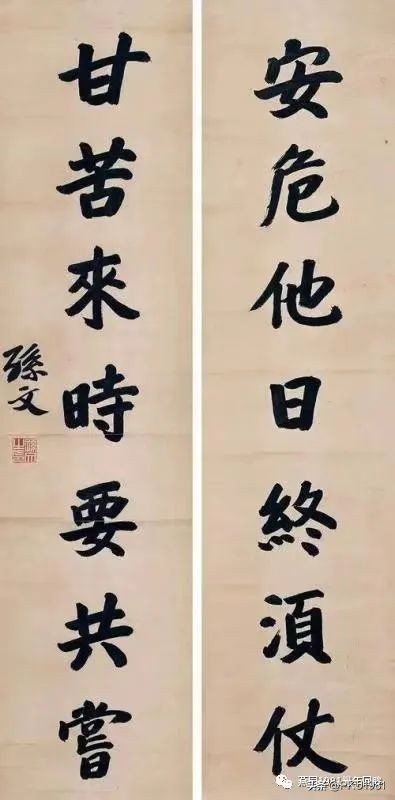 安危他日終湏仗
甘苦來時要共嘗
孫文